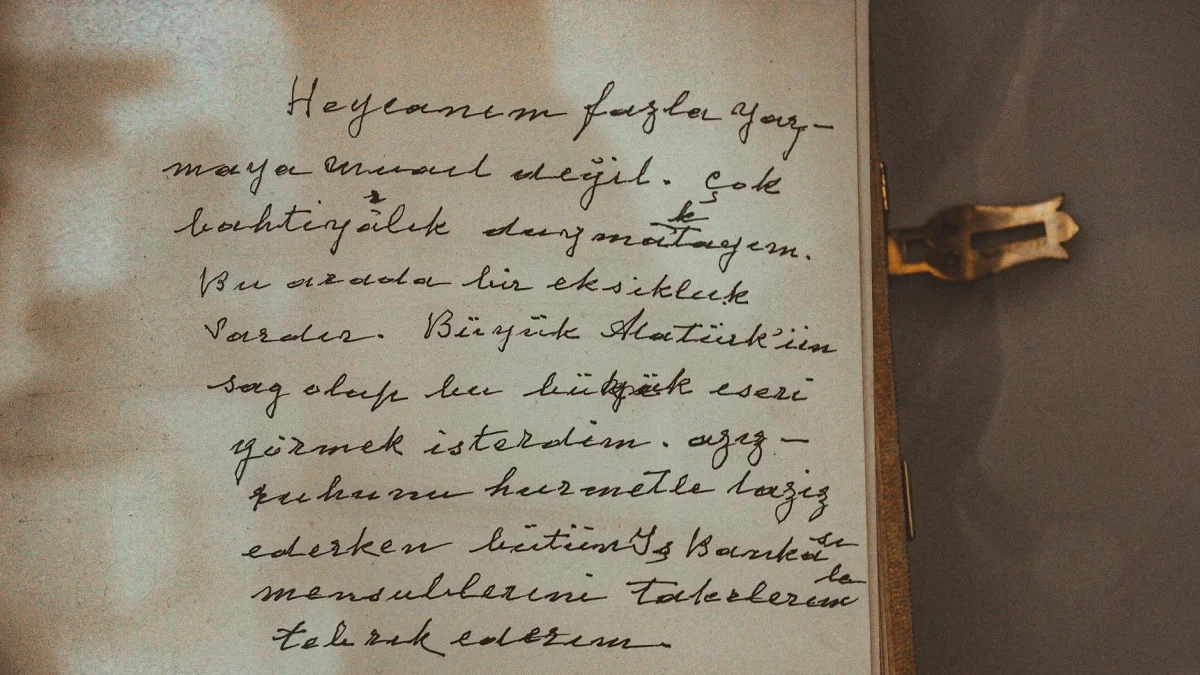 Heycanım fazla yaz-
maya musail değil. Çok
bahtiyârlık duymaktayım.
Bu arada bir eksiklik
vardır. Büyük Atatürk'ün
sag olup bu büyük eseri
görmek isterdim. aziz-
ruhunu hurmetle taziz
ederken bütün İş Bankası
mensublerini takdirlerimle
tebrik ederim.